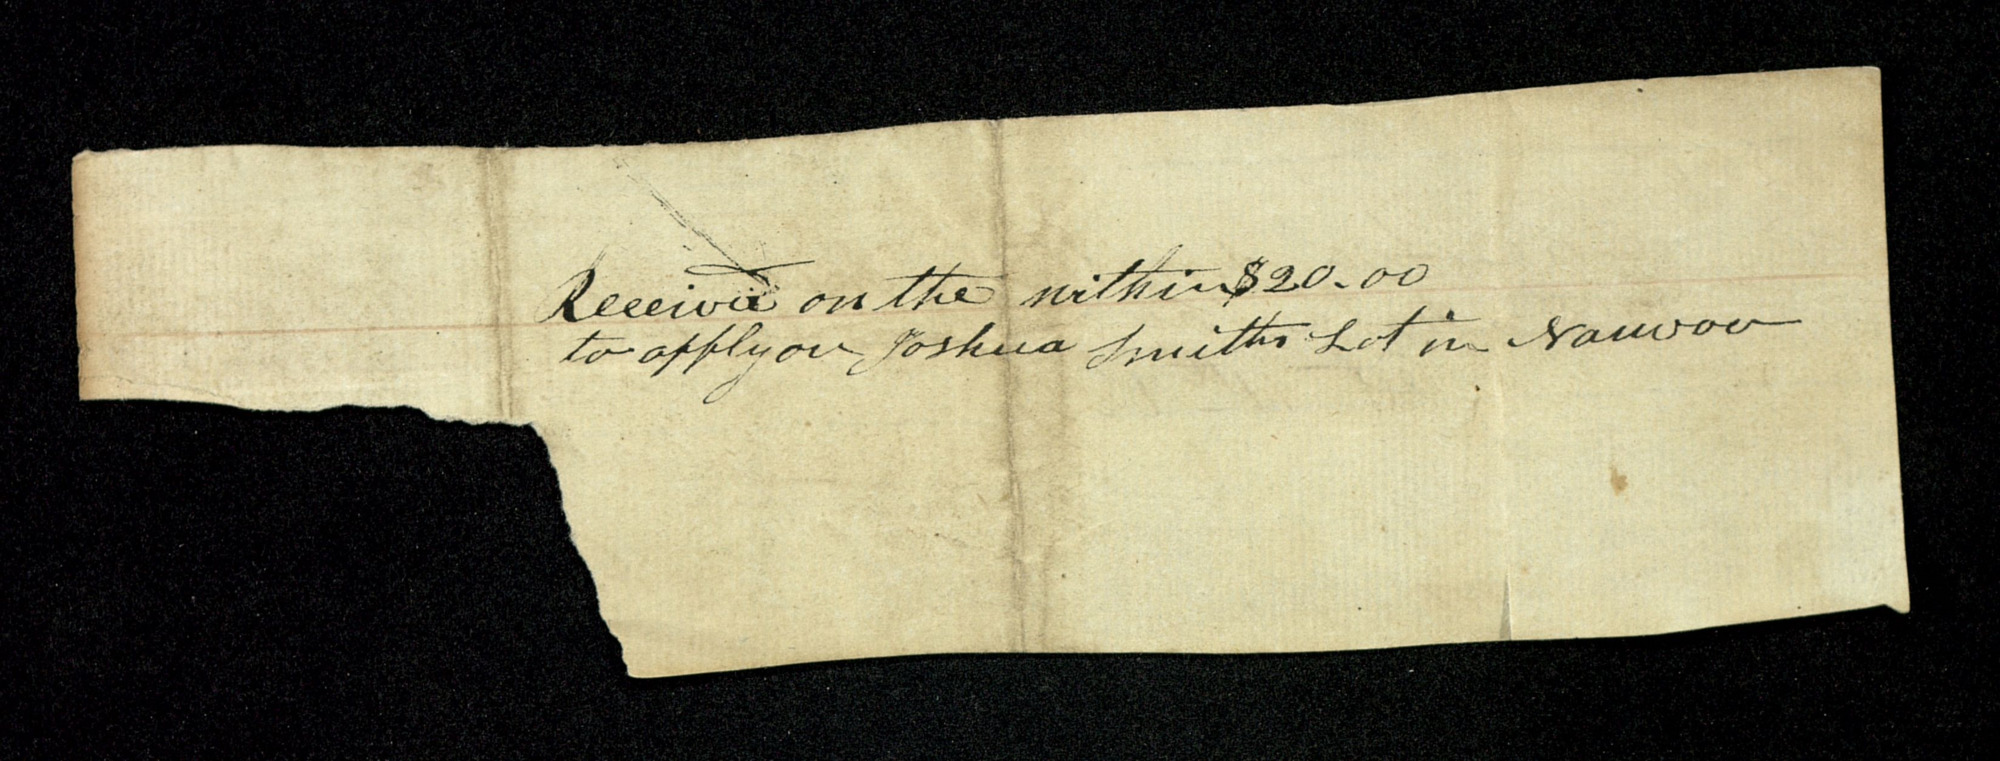 Received on the within $20.00
to apply on Joshua Smiths Lot in Nauvoo